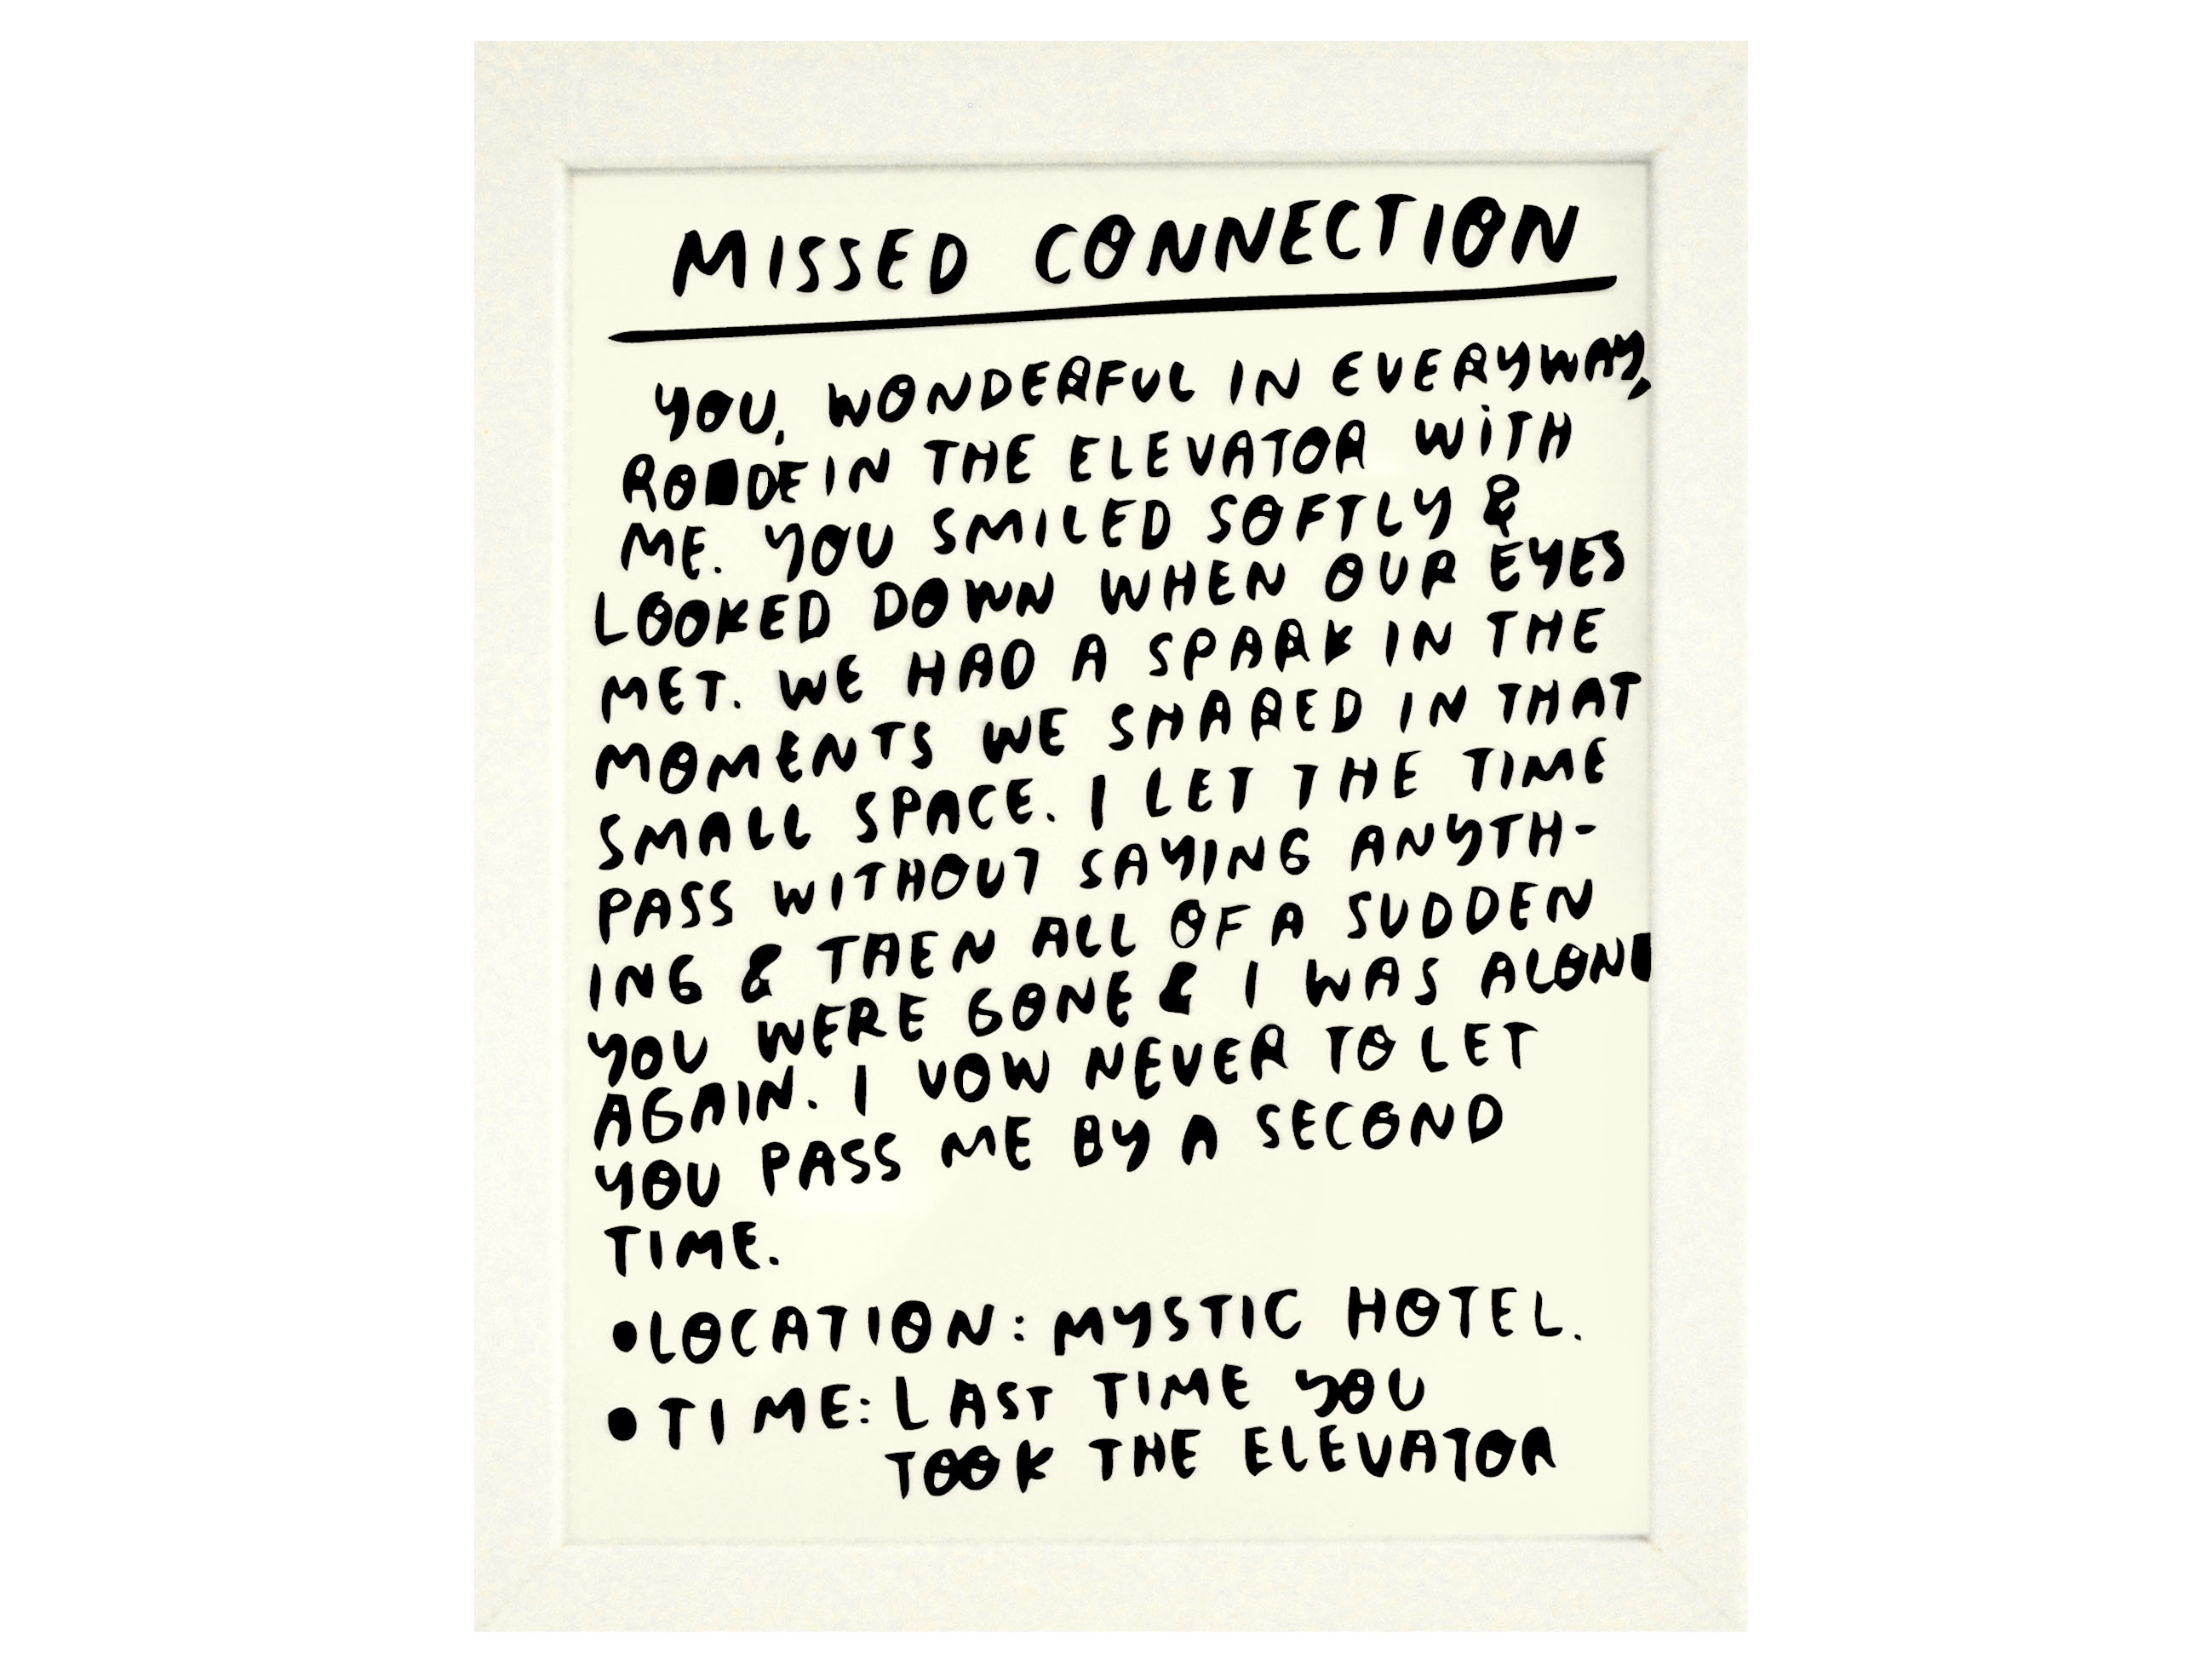 MISSED CONNECTION
YOU, WONDERFUL IN EVERYWAY,
RODE IN THE ELEVATOR WITH
ME. YOU SMILED SOFTLY &
LOOKED DOWN WHEN OUR EYES
MET. WE HAD A SPARK IN THE
MOMENTS WE SHARED IN THAT
SMALL SPACE. I LET THE TIME
PASS WITHOUT SAYING ANYTH-
ING & THEN ALL OF A SUDDEN
YOU WERE GONE & I WAS ALONE
AGAIN. I VOW NEVER TO LET
YOU PASS ME BY A SECOND
TIME.
•LOCATION: MYSTIC HOTEL.
•TIME: LAST TIME YOU
TOOK THE ELEVATOR